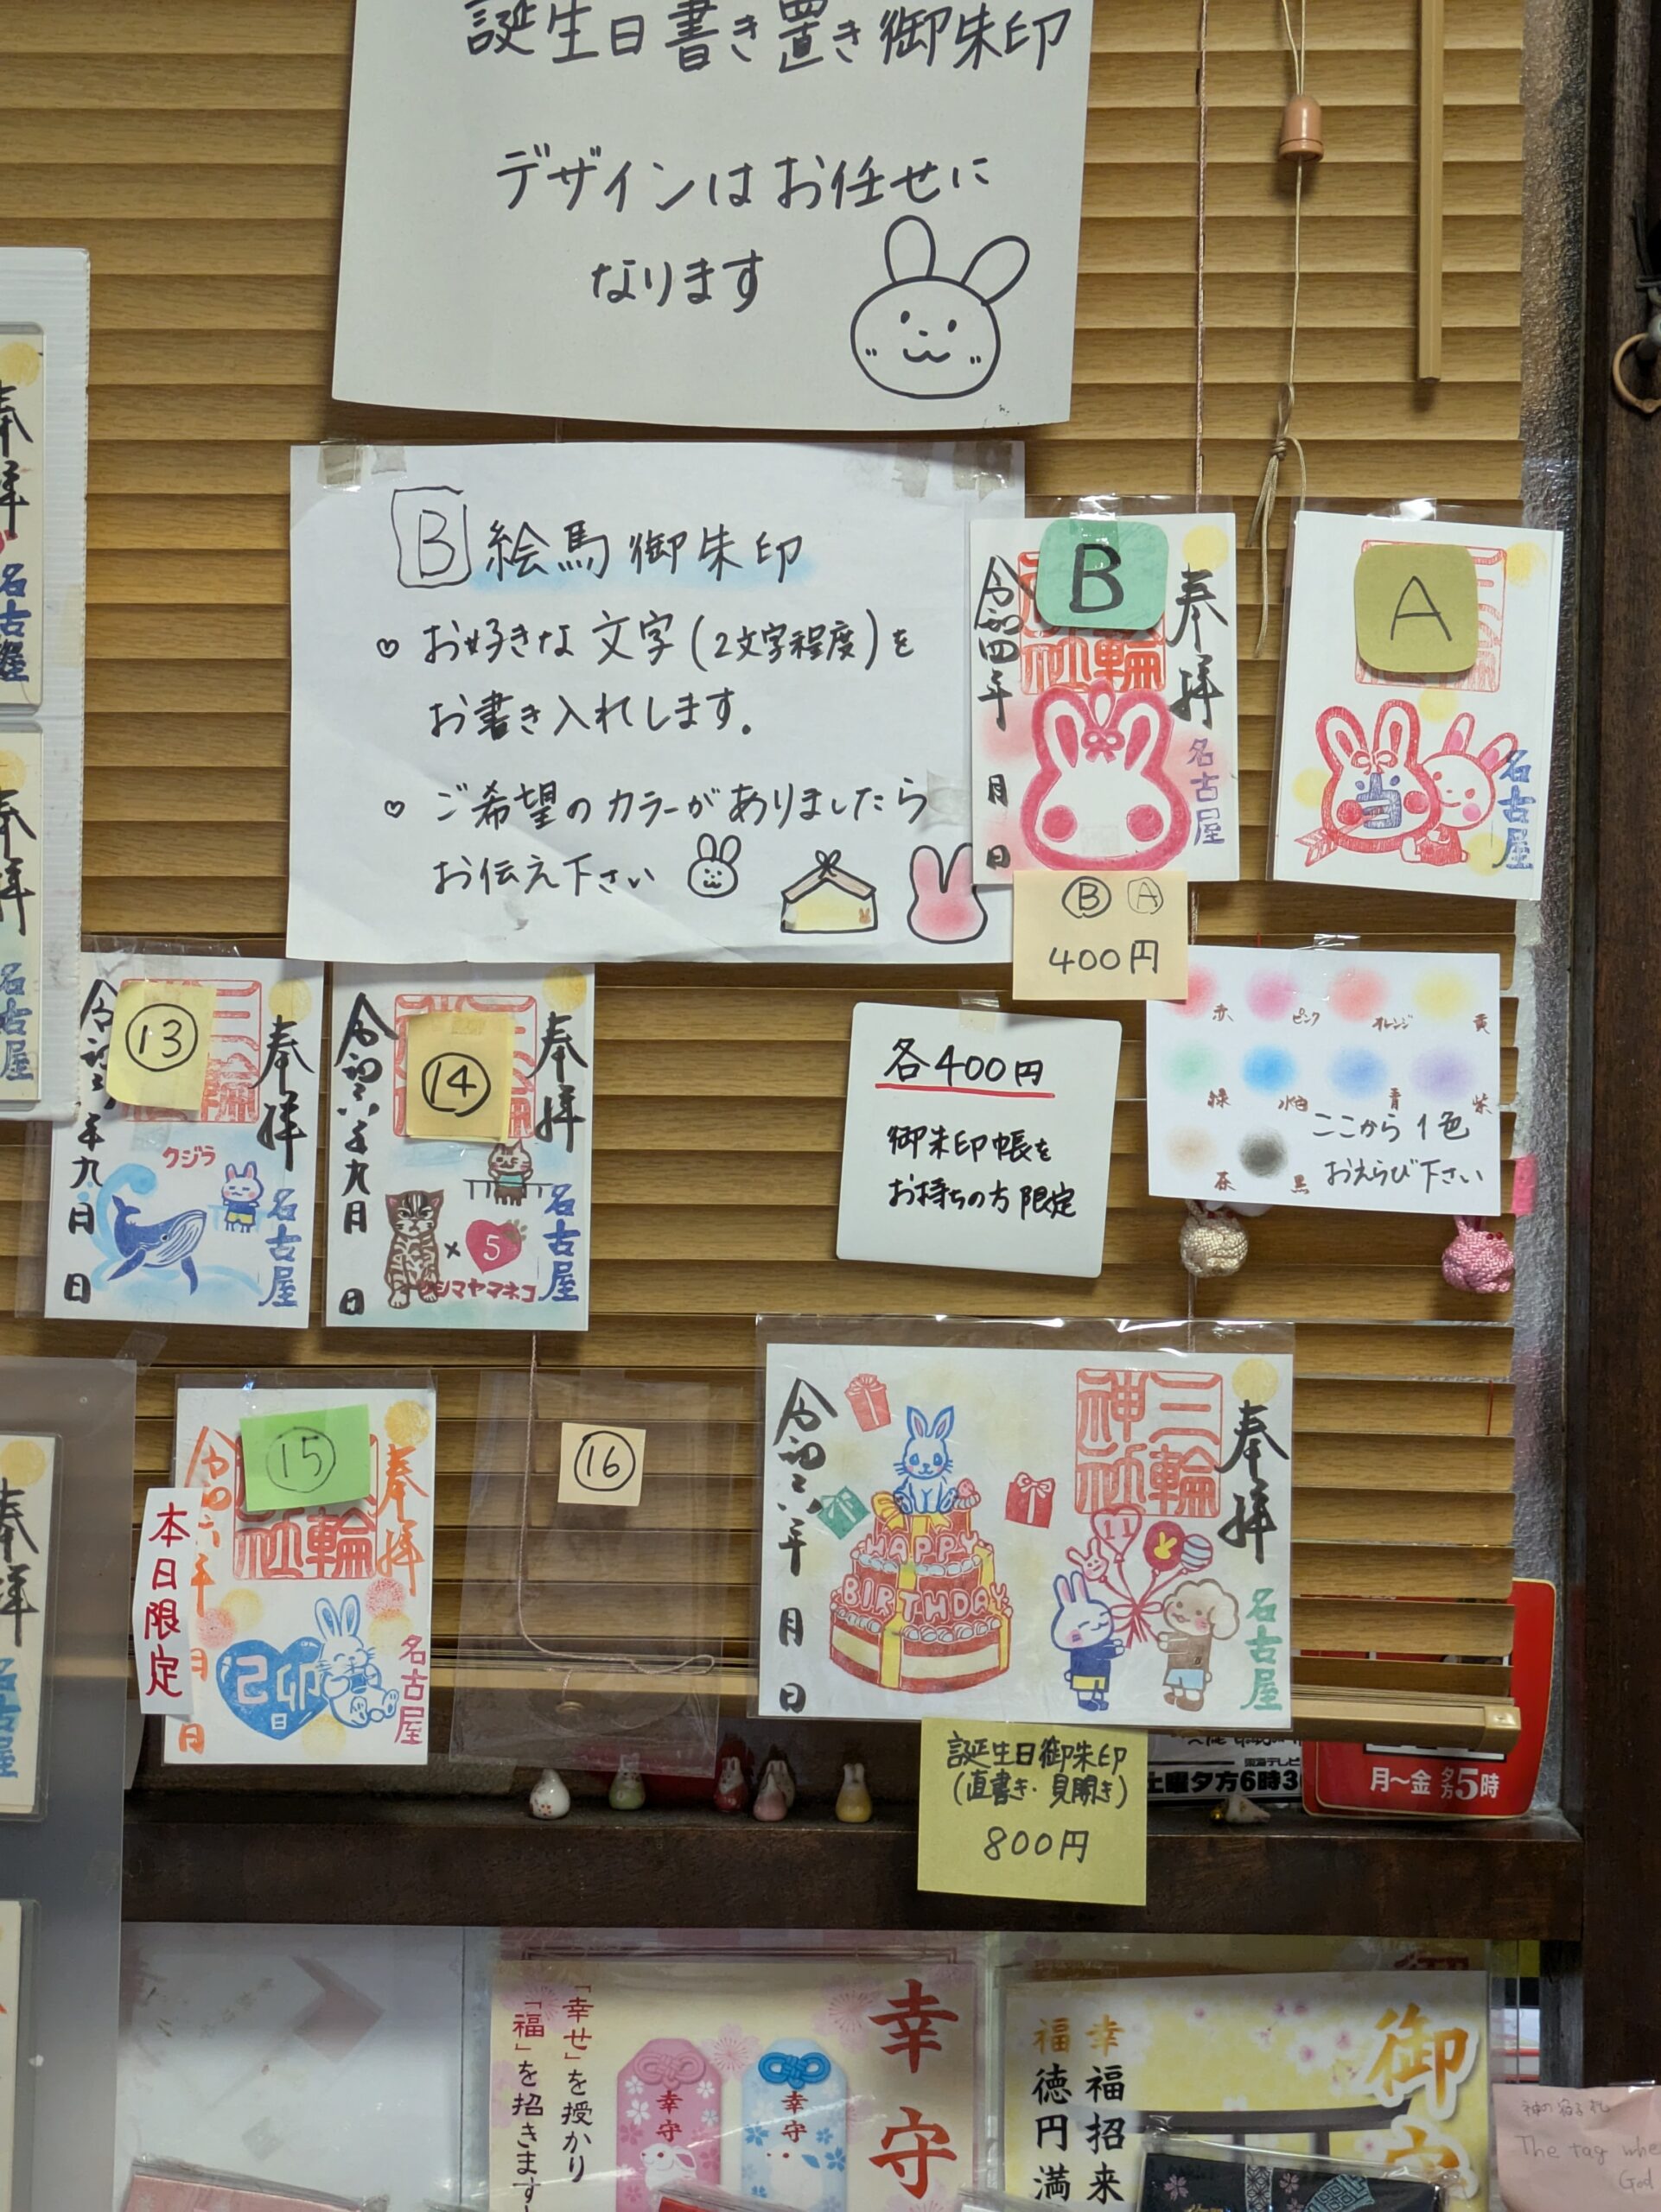 誕生日書き置き御朱印
デザインはお任せに
なります
B 絵馬御朱印
♡ お好きな文字(2文字程度)を
お書き入れします。
♡ ご希望のカラーがありましたら
お伝え下さい
B
奉拝
三輪神社
名古屋
令和四年
月
日
A
当
名古屋
Ⓑ Ⓐ
400円
赤 ピンク オレンジ 黄
緑 水色 青 紫
茶 黒
ここから1色
おえらび下さい
各400円
御朱印帳を
お持ちの方限定
⑬
奉拝
クジラ
名古屋
年九月
日
⑭
奉拝
×5
ツシマヤマネコ
名古屋
令和六年九月
日
⑮
奉拝
名古屋
己卯
日
令和六年
月
日
本日限定
⑯
奉拝
三輪神社
名古屋
11
HAPPY
BIRTHDAY
令和六年
月
日
誕生日御朱印
(直書き・見開き)
800円
土曜夕方6時3
月〜金 夕方5時
幸守
「幸せ」を授かり
「福」を招きます
幸守
幸守
御守
幸福招来
福徳円満
奉拝
名古屋
奉拝
名古屋
奉拝
名古屋
The tag whe
God